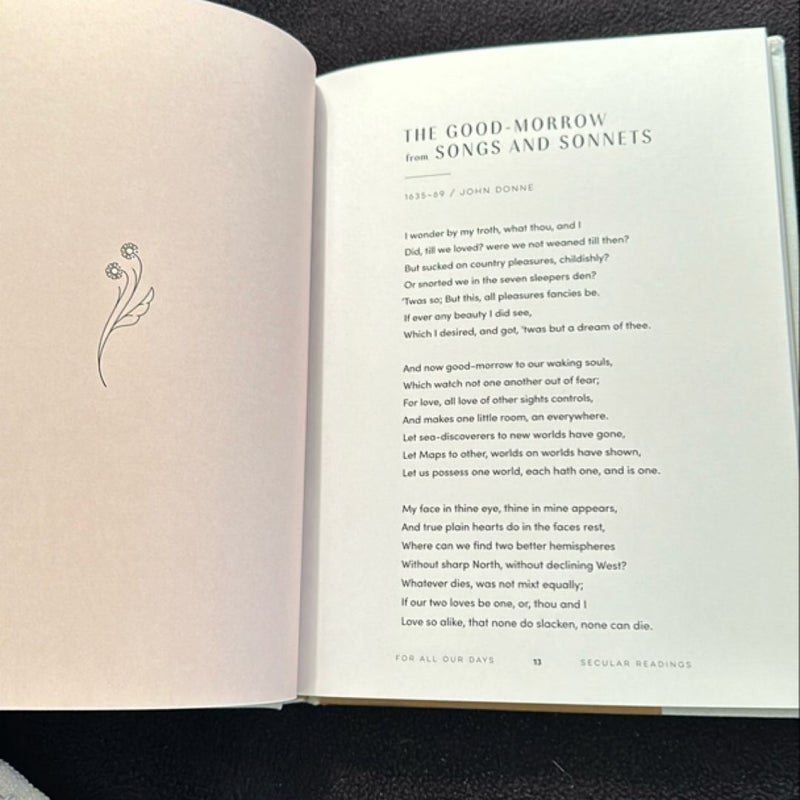 THE GOOD-MORROW
from SONGS AND SONNETS
1635-69 / JOHN DONNE
I wonder by my troth, what thou, and I
Did, till we loved? were we not weaned till then?
But sucked on country pleasures, childishly?
Or snorted we in the seven sleepers den?
'Twas so; But this, all pleasures fancies be.
If ever any beauty I did see,
Which I desired, and got, 'twas but a dream of thee.
And now good-morrow to our waking souls,
Which watch not one another out of fear;
For love, all love of other sights controls,
And makes one little room, an everywhere.
Let sea-discoverers to new worlds have gone,
Let Maps to other, worlds on worlds have shown,
Let us possess one world, each hath one, and is one.
My face in thine eye, thine in mine appears,
And true plain hearts do in the faces rest,
Where can we find two better hemispheres
Without sharp North, without declining West?
Whatever dies, was not mixt equally;
If our two loves be one, or, thou and I
Love so alike, that none do slacken, none can die.
FOR ALL OUR DAYS 13 SECULAR READINGS